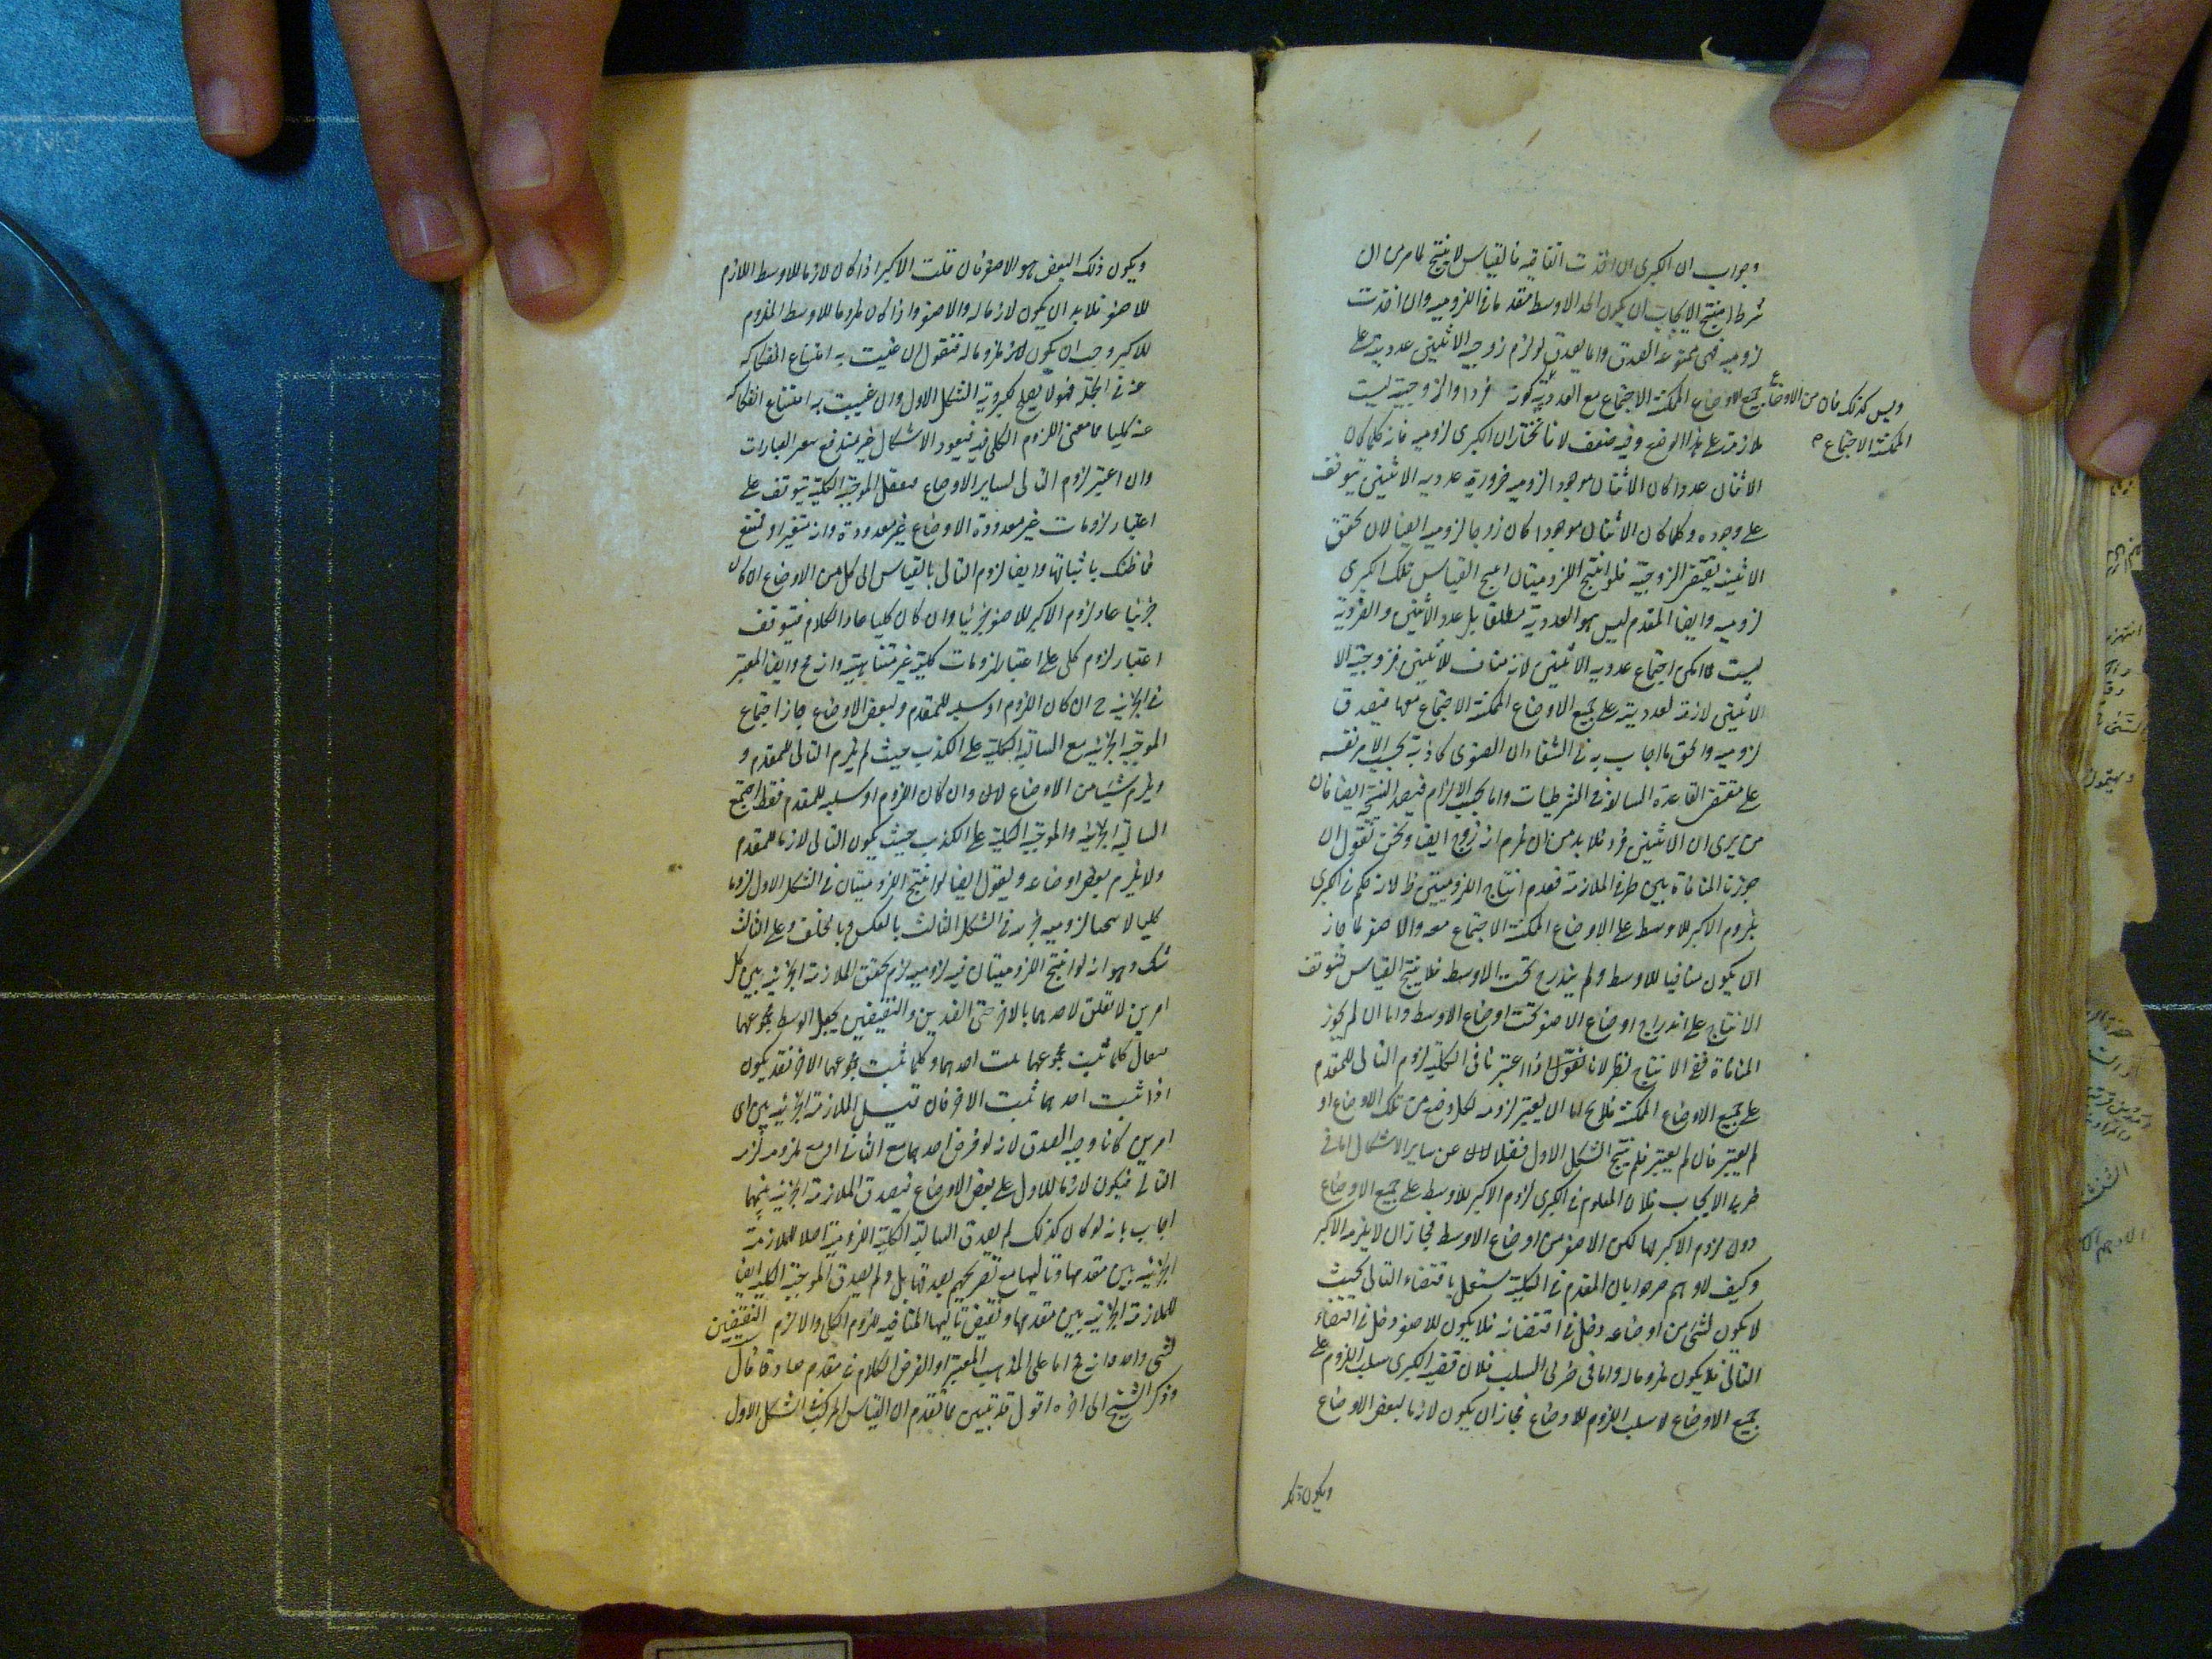 وجوابه ان الكبرى ان اخذت اتفاقية فالقياس لا ينتج لما مر من ان
شرط انتاج الايجاب ان يكون الحد الاوسط مقدما في اللزومية وان اخذت
لزومية فهي ممنوعة الصدق وانما يصدق لو لزم زوجية الاثنين عدديته على
جميع الاوضاع الممكنة الاجتماع مع العددية كونه فردا والزوجية ليست
وليس كذلك فان من الاوضاع
الممكنة الاجتماع
ملازمة على هذا الوضع وفيه ضعف لانا نختار ان الكبرى لزومية فانه كلما كان
الاثنان عددا كان الاثنان موجودا لزومية ضرورية عددية الاثنين تتوقف
على وجوده وكلما كان الاثنان موجودا كان زوجا لزومية ايضا لان تحقق
الاثنينية يقتضي الزوجية فلو انتج اللزوميتان انتج القياس تلك الكبرى
لزومية وايضا المقدم ليس هو العددية مطلقا بل عدد الاثنين والفردية
ليست مما يمكن اجتماع عددية الاثنين لانه مناف للاثنين فزوجية الا
الاثنين لازمة لعدديته على جميع الاوضاع الممكنة الاجتماع معها فيصدق
لزومية والحق ما اجاب به في الشفاء ان الصغرى كاذبة بحسب الامر نفسه
على مقتضى القاعدة السالفة في الشرطيات واما بحسب الالزام فيصدق النتيجة ايضا فان
من يرى ان الاثنين فرد فلا بد من ان يلزم انه زوج ايضا ونحن نقول ان
جوزنا المنافاة بين طرفي الملازمة فعدم انتاج اللزوميتين ظ لانه حكم في الكبرى
بلزوم الاكبر للاوسط على الاوضاع الممكنة الاجتماع معه والاصغر لما جاز
ان يكون منافيا للاوسط ولم يندرج تحت الاوسط فلا ينتج القياس لتوقف
الانتاج على اندراج اوضاع الاصغر تحت اوضاع الاوسط واما ان لم يجوز
المنافاة ففي الانتاج نظر لانا نقول اذا اعتبرنا في الكلية لزوم التالي للمقدم
على جميع الاوضاع الممكنة فلا يخ اما ان يعتبر لزومه لكل وضع من تلك الاوضاع او
لم يعتبر فان لم يعتبر فلم ينتج الشكل الاول فضلا عن ساير الاشكال اما في
ضربي الايجاب فلان المعلوم في الكبرى لزوم الاكبر للاوسط على جميع الاوضاع
دون لزوم الاكبر لها لكن الاصغر من اوضاع الاوسط فجاز ان لا يلزمه الاكبر
وكيف لا وهم صرحوا بان المقدم في الكلية مستقل باقتضاء التالي بحيث
لا يكون لشئ من اوضاعه دخل في اقتضائه فلا يكون للاصغر دخل في اقتضاء
التالي فلا يكون ملزوما له واما في ضربي السلب فلان قضية الكبرى سلب اللزوم على
جميع الاوضاع لا سلب اللزوم للاوضاع فجاز ان يكون لازما لبعض الاوضاع
ويكون ذلك
ويكون ذلك البعض هو الاصغر فان قلت الاكبر اذا كان لازما للاوسط اللازم
للاصغر فلا بد ان يكون لازما له والاصغر اذا كان ملزوما للاوسط الملزوم
للاكبر وجب ان يكون ملزوما له فنقول ان عنيت به امتناع انفكاكه
عنه في الجملة فهو لا يصلح لكبروية الشكل الاول وان عنيت به امتناع انفكاكه
عنه كليا فما معنى اللزوم الكلي فيه فيعود الاشكال غير مندفع بتغير العبارات
وان اعتبر لزوم التالي لساير الاوضاع فتعقل الموجبة الكلية يتوقف على
اعتبار لزومات غير معدودة الاوضاع غير معدودة وانه متعذر او ممتنع
فما ظنك باثباتها وايضا لزوم التالي بالقياس الى كل من الاوضاع ان كان
جزئيا عاد لزوم الاكبر للاصغر جزئيا وان كان كليا عاد الكلام فيتوقف
اعتبار لزوم كلي على اعتبار لزومات كلية غير متناهية وانه مح وايضا المعتبر
في الجزئية ح ان كان اللزوم او سلبه للمقدم ولبعض الاوضاع جاز اجتماع
الموجبة الجزئية مع السالبة الكلية على الكذب حيث لم يلزم التالي للمقدم و
ويلزم شيئا من الاوضاع وان كان اللزوم او سلبه للمقدم فقط اجتمع
السالبة الجزئية والموجبة الكلية على الكذب حيث يكون التالي لازما للمقدم
ولا يلزم بعض اوضاعه ونقول ايضا لو انتج اللزوميتان في الشكل الاول لزوما
كليا لانتجا لزومية جزئية في الشكل الثالث بالعكس وبالخلف وعلى الثالث
شك وهو انه لو انتج اللزوميتان فيه لزومية لزم تحقق الملازمة الجزئية بين كل
امرين لا تعلق لاحدهما بالاخر حتى الضدين والنقيضين بجعل الوسط مجموعهما
فيقال كلما ثبت مجموعهما ثبت احدهما وكلما ثبت مجموعهما الاخر فقد يكون
اذا ثبت احدهما ثبت الاخر فان قيل الملازمة الجزئية بين اي
امرين كانا وجبه الصدق لانه لو فرض احدهما مع الثاني او مع ملزومه لزم
التالي فيكون لازما للاول على بعض الاوضاع فيصدق الملازمة الجزئية بينهما
اجاب بانه لو كان كذلك لم يصدق السالبة الكلية اللزومية اصلا للملازمة
الجزئية بين مقدمها وتاليها مع تصريحهم بصدقها بل ولم يصدق الموجبة الكلية ايضا
للملازمة الجزئية بين مقدمها ونقيض تاليها المنافية للزوم الكلي والا لزم النقيضين
لشئ واحد وانه مح اما على المذهب المعتبر او الفرض الكلام في مقدم صادق قال
وذكر الشيخ الى اخره اقول قد تبين مما تقدم ان القياس المركب في الشكل الاول